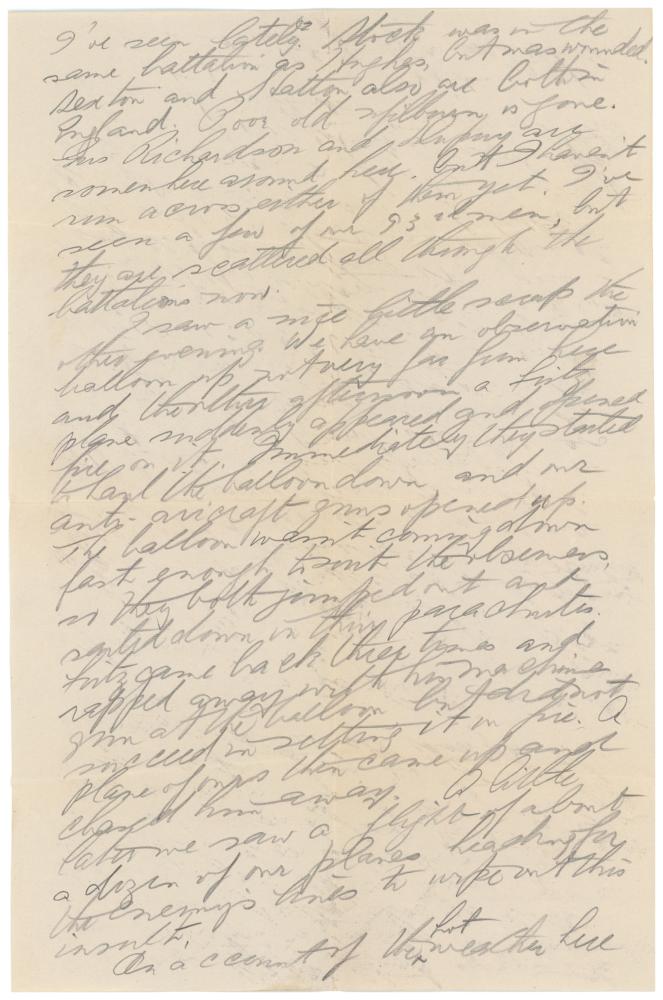 I've seen lately. Stock was in the
same battalion as Hughes, but was wounded.
Sexton and Hatton also are both in
England. Poor old is gone.
Gus Richardson and are
somewhere around here. but I haven't
run across either of them yet. I've
seen a few of our 93rd men, but
they are scattered all through the
battalions now.
I saw a nice little scrap the
other evening. We have an observation
balloon up not very far from here
and the other afternoon a Fritz
plane suddenly appeared and opened
fire on it. Immediately they started
to haul the balloon down, and our
anti-aircraft guns opened up.
The balloon wasn't coming down
fast enough to suit the observers,
so they both jumped out and
sailed down in their parachutes.
Fritz came back three times and
rapped away with his machine
gun at the balloon but did not
succeed in setting it on fire. A
plane of ours then came up and
chased him away. A little
later we saw a flight of about
a dozen of our planes heading for
the enemy's lines to wipe out this
insult.
On account of the hot weather here